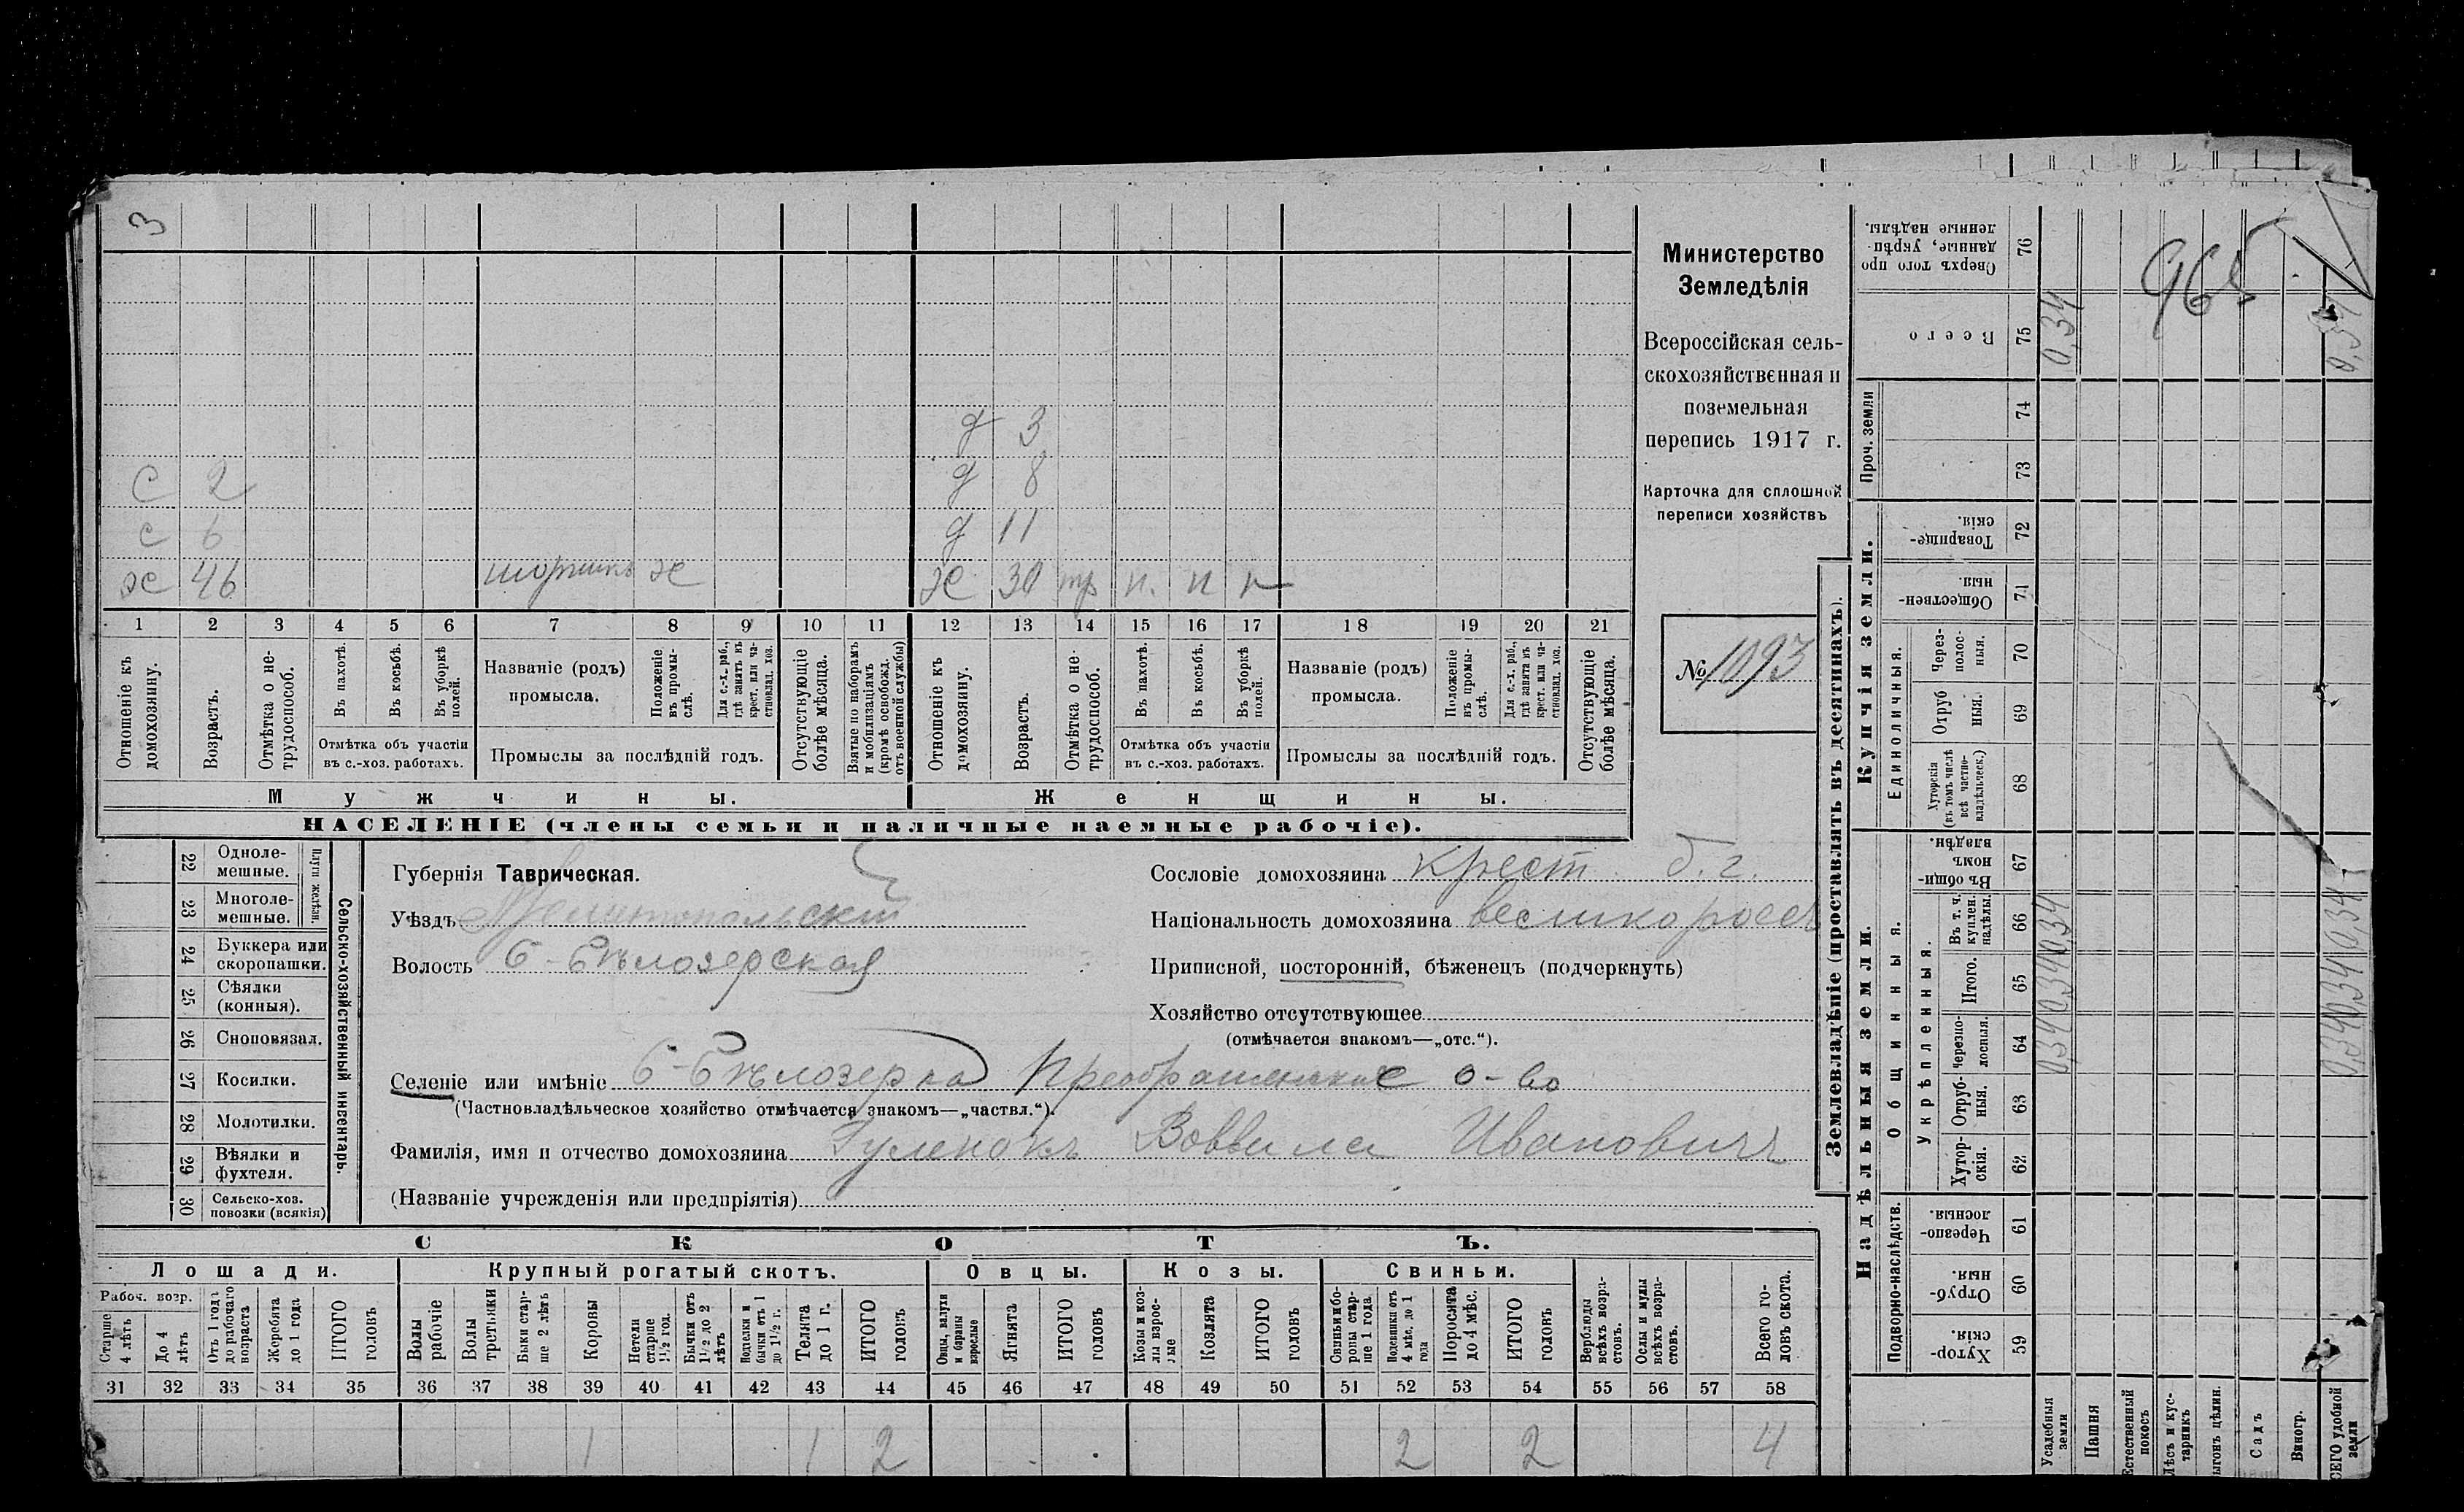 3
д 3
С 2 д 8
с 6 д 11
х 46 шорникъ х Ж 30 тр п. п п
1 2 3 4 5 6 7 8 9 10 11 12 13 14 15 16 17 18 19 20 21
Отношеніе къ домохозяину.
Возрастъ.
Отмѣтка о не-трудоспособ.
Въ пахотѣ.
Въ косьбѣ.
Въ уборкѣ полей.
Отмѣтка объ участіи
въ с.-хоз. работахъ.
Названіе (родъ)
промысла.
Положеніе въ промы-слѣ.
Для с.-х. раб., гдѣ занятъ въ крест. или ча-стновлад. хоз.
Промыслы за послѣдній годъ.
Отсутствующіе болѣе мѣсяца.
Взятые по наборамъ и мобилизаціямъ (кромѣ освобожд. отъ военной службы)
Отношеніе къ домохозяину.
Возрастъ.
Отмѣтка о не-трудоспособ.
Въ пахотѣ.
Въ косьбѣ.
Въ уборкѣ полей.
Отмѣтка объ участіи
въ с.-хоз. работахъ.
Названіе (родъ)
промысла.
Положеніе въ промы-слѣ.
Для с.-х. раб., гдѣ занята въ крест. или ча-стновлад. хоз.
Промыслы за послѣдній годъ.
Отсутствующіе болѣе мѣсяца.
Мужчины. Женщины.
НАСЕЛЕНІЕ (члены семьи и наличные наемные рабочіе).
Министерство
Земледѣлія
Всероссійская сель-
скохозяйственная и
поземельная
перепись 1917 г.
Карточка для сплошной
переписи хозяйствъ
№ 1093
Сельско-хозяйственный инвентарь.
Плуги желѣзн.
22 Одноле-мешные.
23 Многоле-мешные.
24 Буккера или скоропашки.
25 Сѣялки (конныя).
26 Сноповязал.
27 Косилки.
28 Молотилки.
29 Вѣялки и фухтеля.
30 Сельско-хоз. повозки (всякія)
Губернія Таврическая.
Уѣздъ Мелитопольскій
Волость Б-Бѣлозерская
Сословіе домохозяина крест б.г.
Національность домохозяина великороссъ
Приписной, посторонній, бѣженецъ (подчеркнуть)
Хозяйство отсутствующее
(отмѣчается знакомъ—„отс.“).
Селеніе или имѣніе Б-Бѣлозерка Преображенское о-во
(Частновладѣльческое хозяйство отмѣчается знакомъ—„частвл.“).
Фамилія, имя и отчество домохозяина Гуленокъ Воввила Ивановичъ
(Названіе учрежденія или предпріятія)
СКОТЪ.
Лошади. Крупный рогатый скотъ. Овцы. Козы. Свиньи.
Рабоч. возр.
Старше 4 лѣтъ
До 4 лѣтъ
Отъ 1 года до рабочаго возраста
Жеребята до 1 года
ИТОГО головъ
Волы рабочіе
Волы третьяки
Быки стар-ше 2 лѣтъ
Коровы
Нетели старше 1½ год.
Бычки отъ 1½ до 2 лѣтъ
Подтелки и бычки отъ 1 до 1½ г.
Телята до 1 г.
ИТОГО головъ
Овцы, валухи и бараны взрослые
Ягнята
ИТОГО головъ
Козы и коз-лы взрос-лые
Козлята
ИТОГО головъ
Свиньи и бо-ровы стар-ше 1 года
Подсвинки отъ 4 мѣс. до 1 года
Поросята до 4 мѣс.
ИТОГО головъ
Верблюды всѣхъ возра-стовъ.
Ослы и мулы всѣхъ возра-стовъ.
Всего го-ловъ скота.
31 32 33 34 35 36 37 38 39 40 41 42 43 44 45 46 47 48 49 50 51 52 53 54 55 56 57 58
1 1 2 2 2 4
Землевладѣніе (проставлять въ десятинахъ).
Сверхъ того про данные, укрѣп-ленные надѣлы. 76
965
Всего 75 0,34 0,34
Проч. земли 74 73
Купчія земли.
Товарище-скія. 72
Обществен-ныя. 71
Единоличныя.
Через-полос-ныя. 70
Отруб ныя. 69
Хуторскія (въ томъ числѣ всѣ частно-владѣльческ.) 68
Надѣльныя земли.
Общинныя.
Въ общин номъ владѣн. 67
Укрѣпленныя.
Въ т. ч. куплен. надѣлы. 66 0,34 0,34
Итого. 65 0,34 0,34
Черезпо-лосныя. 64 0,34 0,34
Отруб-ныя. 63
Хутор-скія. 62
Подворно-наслѣдств.
Черезпо-лосныя. 61
Отруб-ныя. 60
Хутор-скія. 59
Усадебныя земли
Пашня
Естественный покосъ
Лѣсъ и кус-тарникъ
ыгонъ цѣлин.
Садъ
Виногр.
СЕГО удобной земли